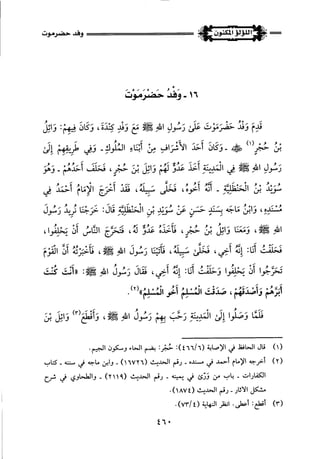 وفد حضرموت
اللؤلؤ المكنون
١٦ - وَفْدُ حَضْرَمَوْتَ
قَدِمَ وَفْدُ حَضْرَمَوْتَ عَلَى رَسُولِ اللهِ ﷺ مَعَ وَفْدِ كِنْدَةَ، وَكَانَ فِيهِمْ: وَائِلُ
بْنُ حُجْرٍ(١) ﷺ - وَكَانَ أَحَدَ الْأَشْرَافِ مِنْ أَبْنَاءِ الْمُلُوكِ - وَفِي طَرِيقِهِمْ إِلَى
رَسُولِ اللهِ ﷺ فِي الْمَدِينَةِ أَخَذَ عَدُوٌّ لَهُمْ وَائِلَ بْنَ حُجْرٍ، فَحَلَفَ أَحَدُهُمْ - وَهُوَ
سُوَيْدُ بْنُ الْحَنْظَلِيَّةِ - أَنَّهُ أَخُوهُ، فَخَلَّى سَبِيلَهُ، فَقَدْ أَخْرَجَ الْإِمَامُ أَحْمَدُ فِي
مُسْنَدِهِ، وَابْنُ مَاجَه بِسَنَدٍ حَسَنٍ عَنْ سُوَيْدِ بْنِ الْحَنْظَلِيَّةِ قَالَ: خَرَجْنَا نُرِيدُ رَسُولَ
اللهِ ﷺ، وَمَعَنَا وَائِلُ بْنُ حُجْرٍ، فَأَخَذَهُ عَدُوٌّ لَهُ، فَتَحَرَّجَ النَّاسُ أَنْ يَحْلِفُوا،
فَحَلَفْتُ أَنَا: إِنَّهُ أَخِي، فَخَلَّى سَبِيلَهُ، فَأَتَيْنَا رَسُولَ اللهِ ﷺ، فَأَخْبَرْتُهُ أَنَّ الْقَوْمَ
تَحَرَّجُوا أَنْ يَحْلِفُوا وَحَلَفْتُ أَنَا: إِنَّهُ أَخِي، فَقَالَ رَسُولُ اللهِ ﷺ: «أَنْتَ كُنْتَ
أَبَرَّهُمْ وَأَصْدَقَهُمْ، صَدَقْتَ الْمُسْلِمُ أَخُو الْمُسْلِمِ»(٢).
فَلَمَّا وَصَلُوا إِلَى الْمَدِينَةِ رَحَّبَ بِهِمْ رَسُولُ اللهِ ﷺ، وَأَقْطَعَ(٣) وَائِلَ بْنَ
(١) قال الحافظ في الإصابة (٤٦٦/٦): حُجْر: بضم الحاء وسكون الجيم.
(٢) أخرجه الإمام أحمد في مسنده - رقم الحديث (١٦٧٢٦) - وابن ماجه في سننه - كتاب
الكفارات - باب من وَرَّى في يمينه - رقم الحديث (٢١١٩) - والطحاوي في شرح
مشكل الآثار - رقم الحديث (١٨٧٤).
(٣) أقطع: أعطى. انظر النهاية (٧٣/٤).
٤٦٠